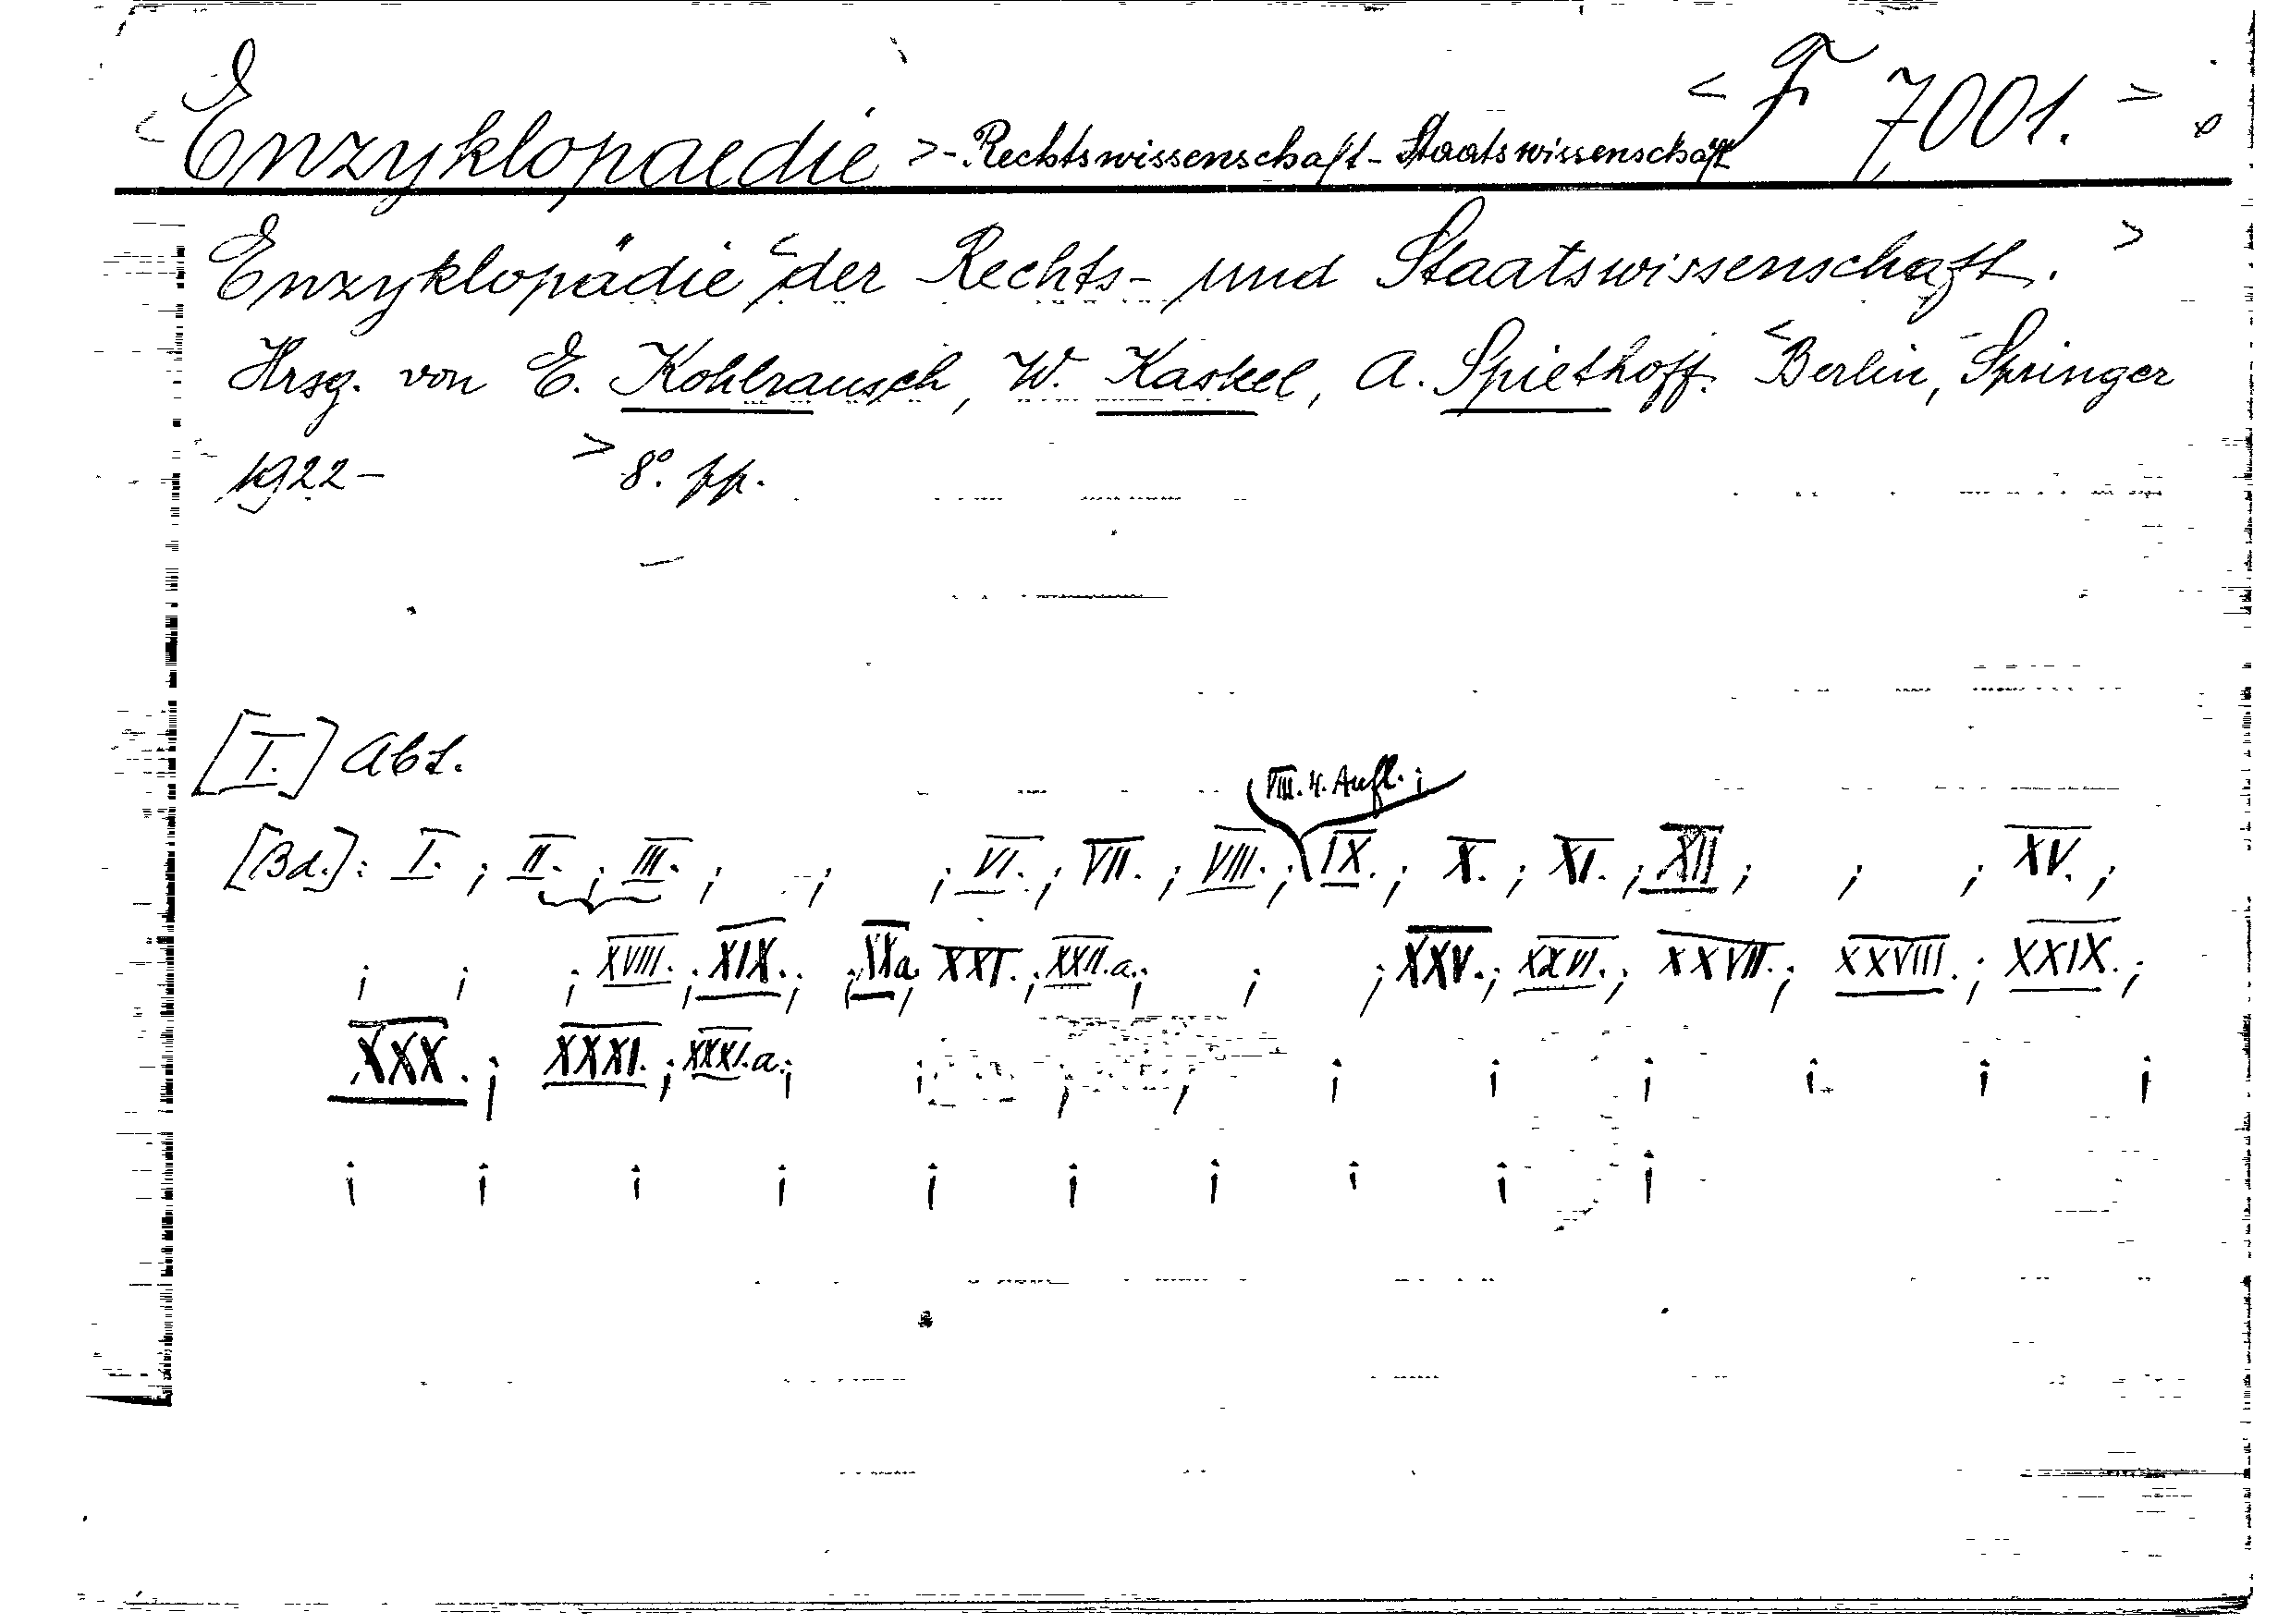 < F 7001. >
< Enzyklopaedie > - Rechtswissenschaft - Staatswissenschaft
Enzyklopädie < der Rechts- und Staatswissenschaft. >
Hrsg. von E. Kohlrausch, W. Kaskel, A. Spiethoff. < Berlin, Springer
1922- > 8°. pp.
[I.] Abt.
VIII. 4. Aufl. ;
[Bd.]: I. ; II. ; III. ; ; ; VI. ; VII. ; VIII. ; IX. ; X. ; XI. ; XII ; ; ; XV. ;
; ; ; XVIII. ; XIX. ; ; XXa ; XXI. ; XXII.a. ; ; ; XXV. ; XXVI. ; XXVII. ; XXVIII. ; XXIX. ;
XXX. ; XXXI. ; XXXI.a. ; ; ; ; ; ; ; ; ; ;
; ; ; ; ; ; ; ; ; ;